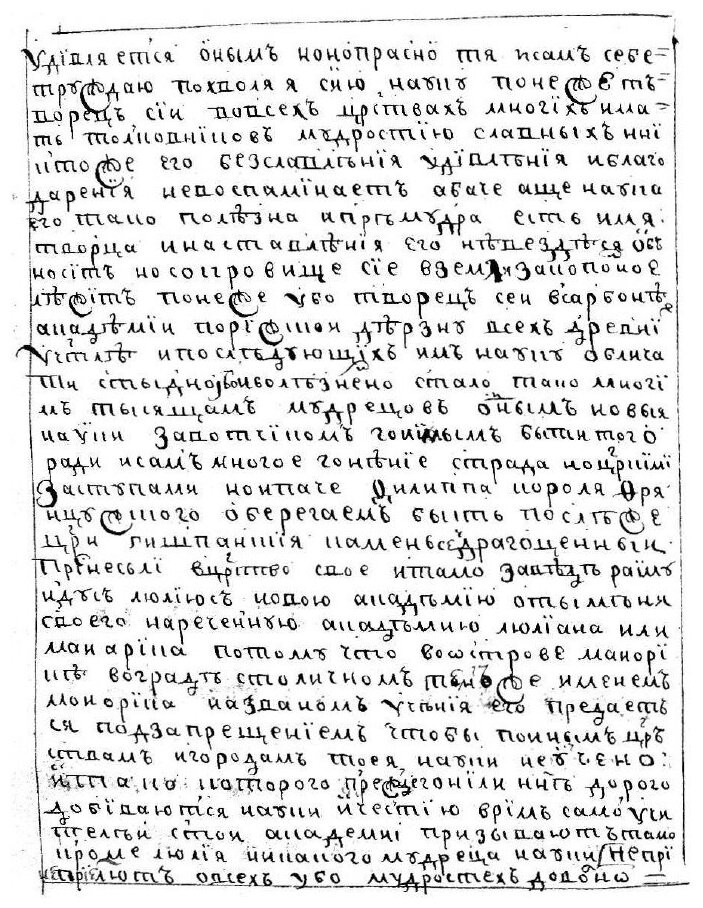 удівляется онымъ конопрасно тя исамъ себе
труждаю похволяя сию науку понежетъ
ворецъ сіи вовсехъ црствахъ многіхъ има
ть толковніковъ мудростію славныхъ ниі
хтоже его безславлѣнія удівлѣнія иблаго
дарения невоспамінаетъ абаче аще наука
его тако полѣзна ипрѣмудра есть имя
творца инаставлѣнія его нѣвездѣся объ
носітъ носокровище сіе вземля закопоное
лѣжітъ понеже убо творецъ сеи всарбонѣ
академіи поріжскои дѣрзну всехъ древні
учітѣ ипоследующіхъ имъ науку облича
ти стыдно иболѣзнено стало тако многі
мъ тысящамъ мудрецовъ онымъ новыя
науки запотчікомъ гонимымъ быти того
ради исамъ многое гонѣніе страда нкоцркімі
заступами ноипаче филиппа короля фря
нцужского оберегаемъ бысть послѣже
цри гишпанския каменьвседрагоценныи
прінесьлі вцрство свое итамо завѣдъ раіму
ндусъ люліюсъ новою академію отымѣня
своего нареченную академию люліана или
макаріка потому что воострове макорі
кѣ воградѣ столичномъ тѣможе именемъ
макоріка названомъ учения его предаетъ
ся подзапрещеніемъ чтобы поинымъ цръ
ствамъ игородамъ тоея науки неучено
итако которого преждегонили ннѣ дорого
добіваются науки ичестію врімъ само учи
тельи стои академиі призываютъ тамо
кроме люлія инікакого мудреца науки непрі
непріемлютъ овсехъ убо мудростехъ довоно